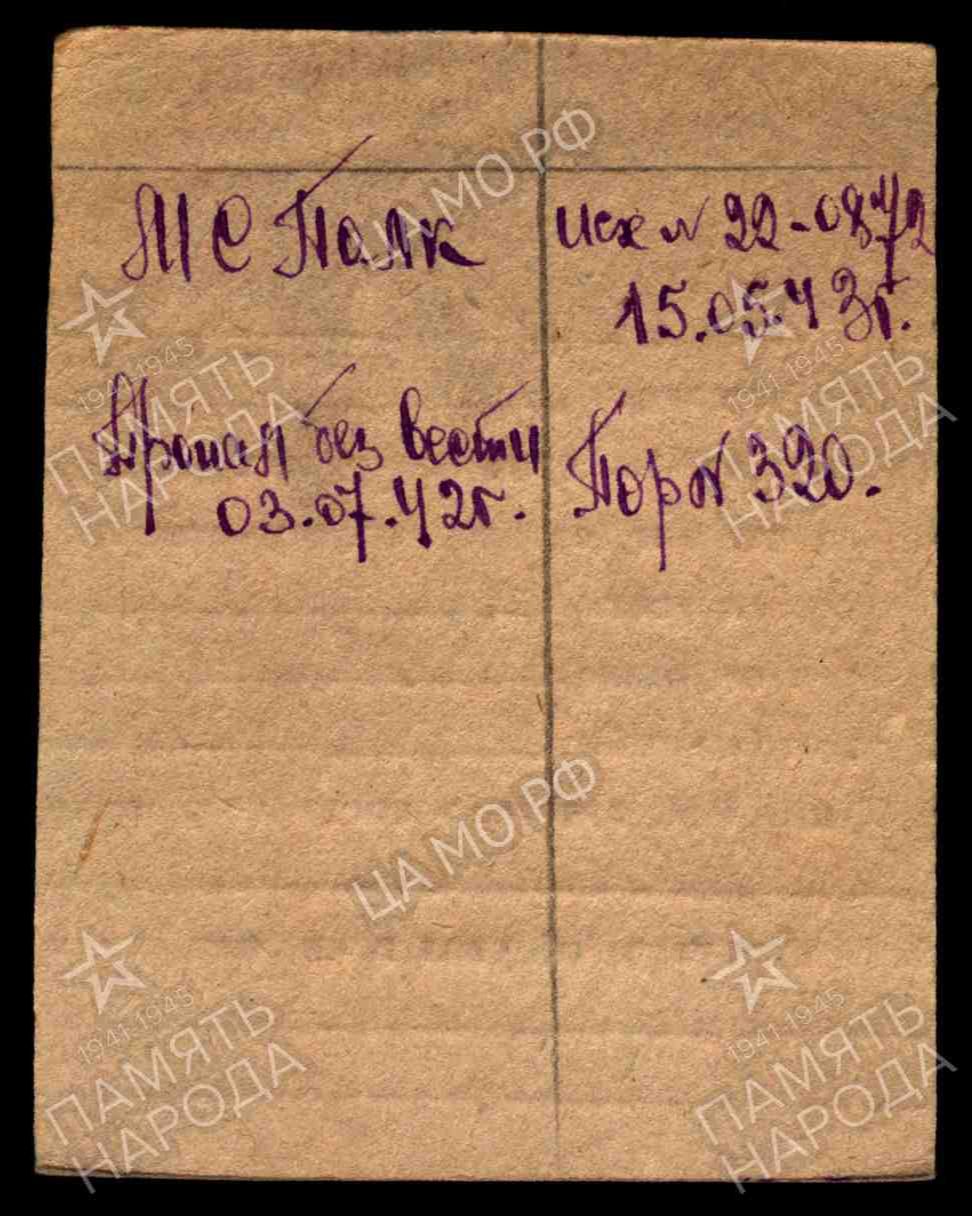 МС Полк
Исх № 22-0872
15.05.43г.
Пропал без вести
03.07.42г.
Пор № 320.
ЦА МО РФ
1941-1945
ПАМЯТЬ
НАРОДА
1941-1945
ПАМЯТЬ
НАРОДА
ЦА МО РФ
1941-1945
ПАМЯТЬ
НАРОДА
1941-1945
ПАМЯТЬ
НАРОДА